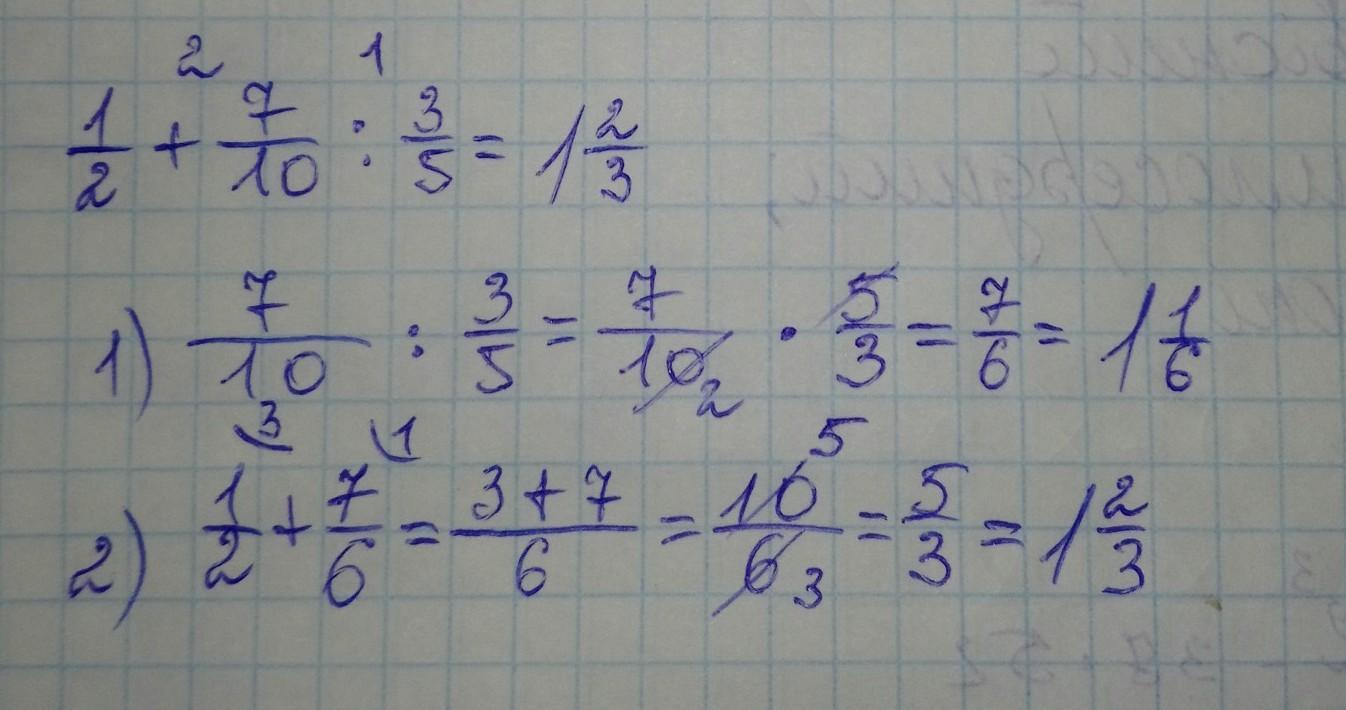 2 1
1/2 + 7/10 : 3/5 = 1 2/3
1) 7/10 : 3/5 = 7/10 2 · 5/3 = 7/6 = 1 1/6
3 1 5
2) 1/2 + 7/6 = 3+7/6 = 10/6 3 = 5/3 = 1 2/3